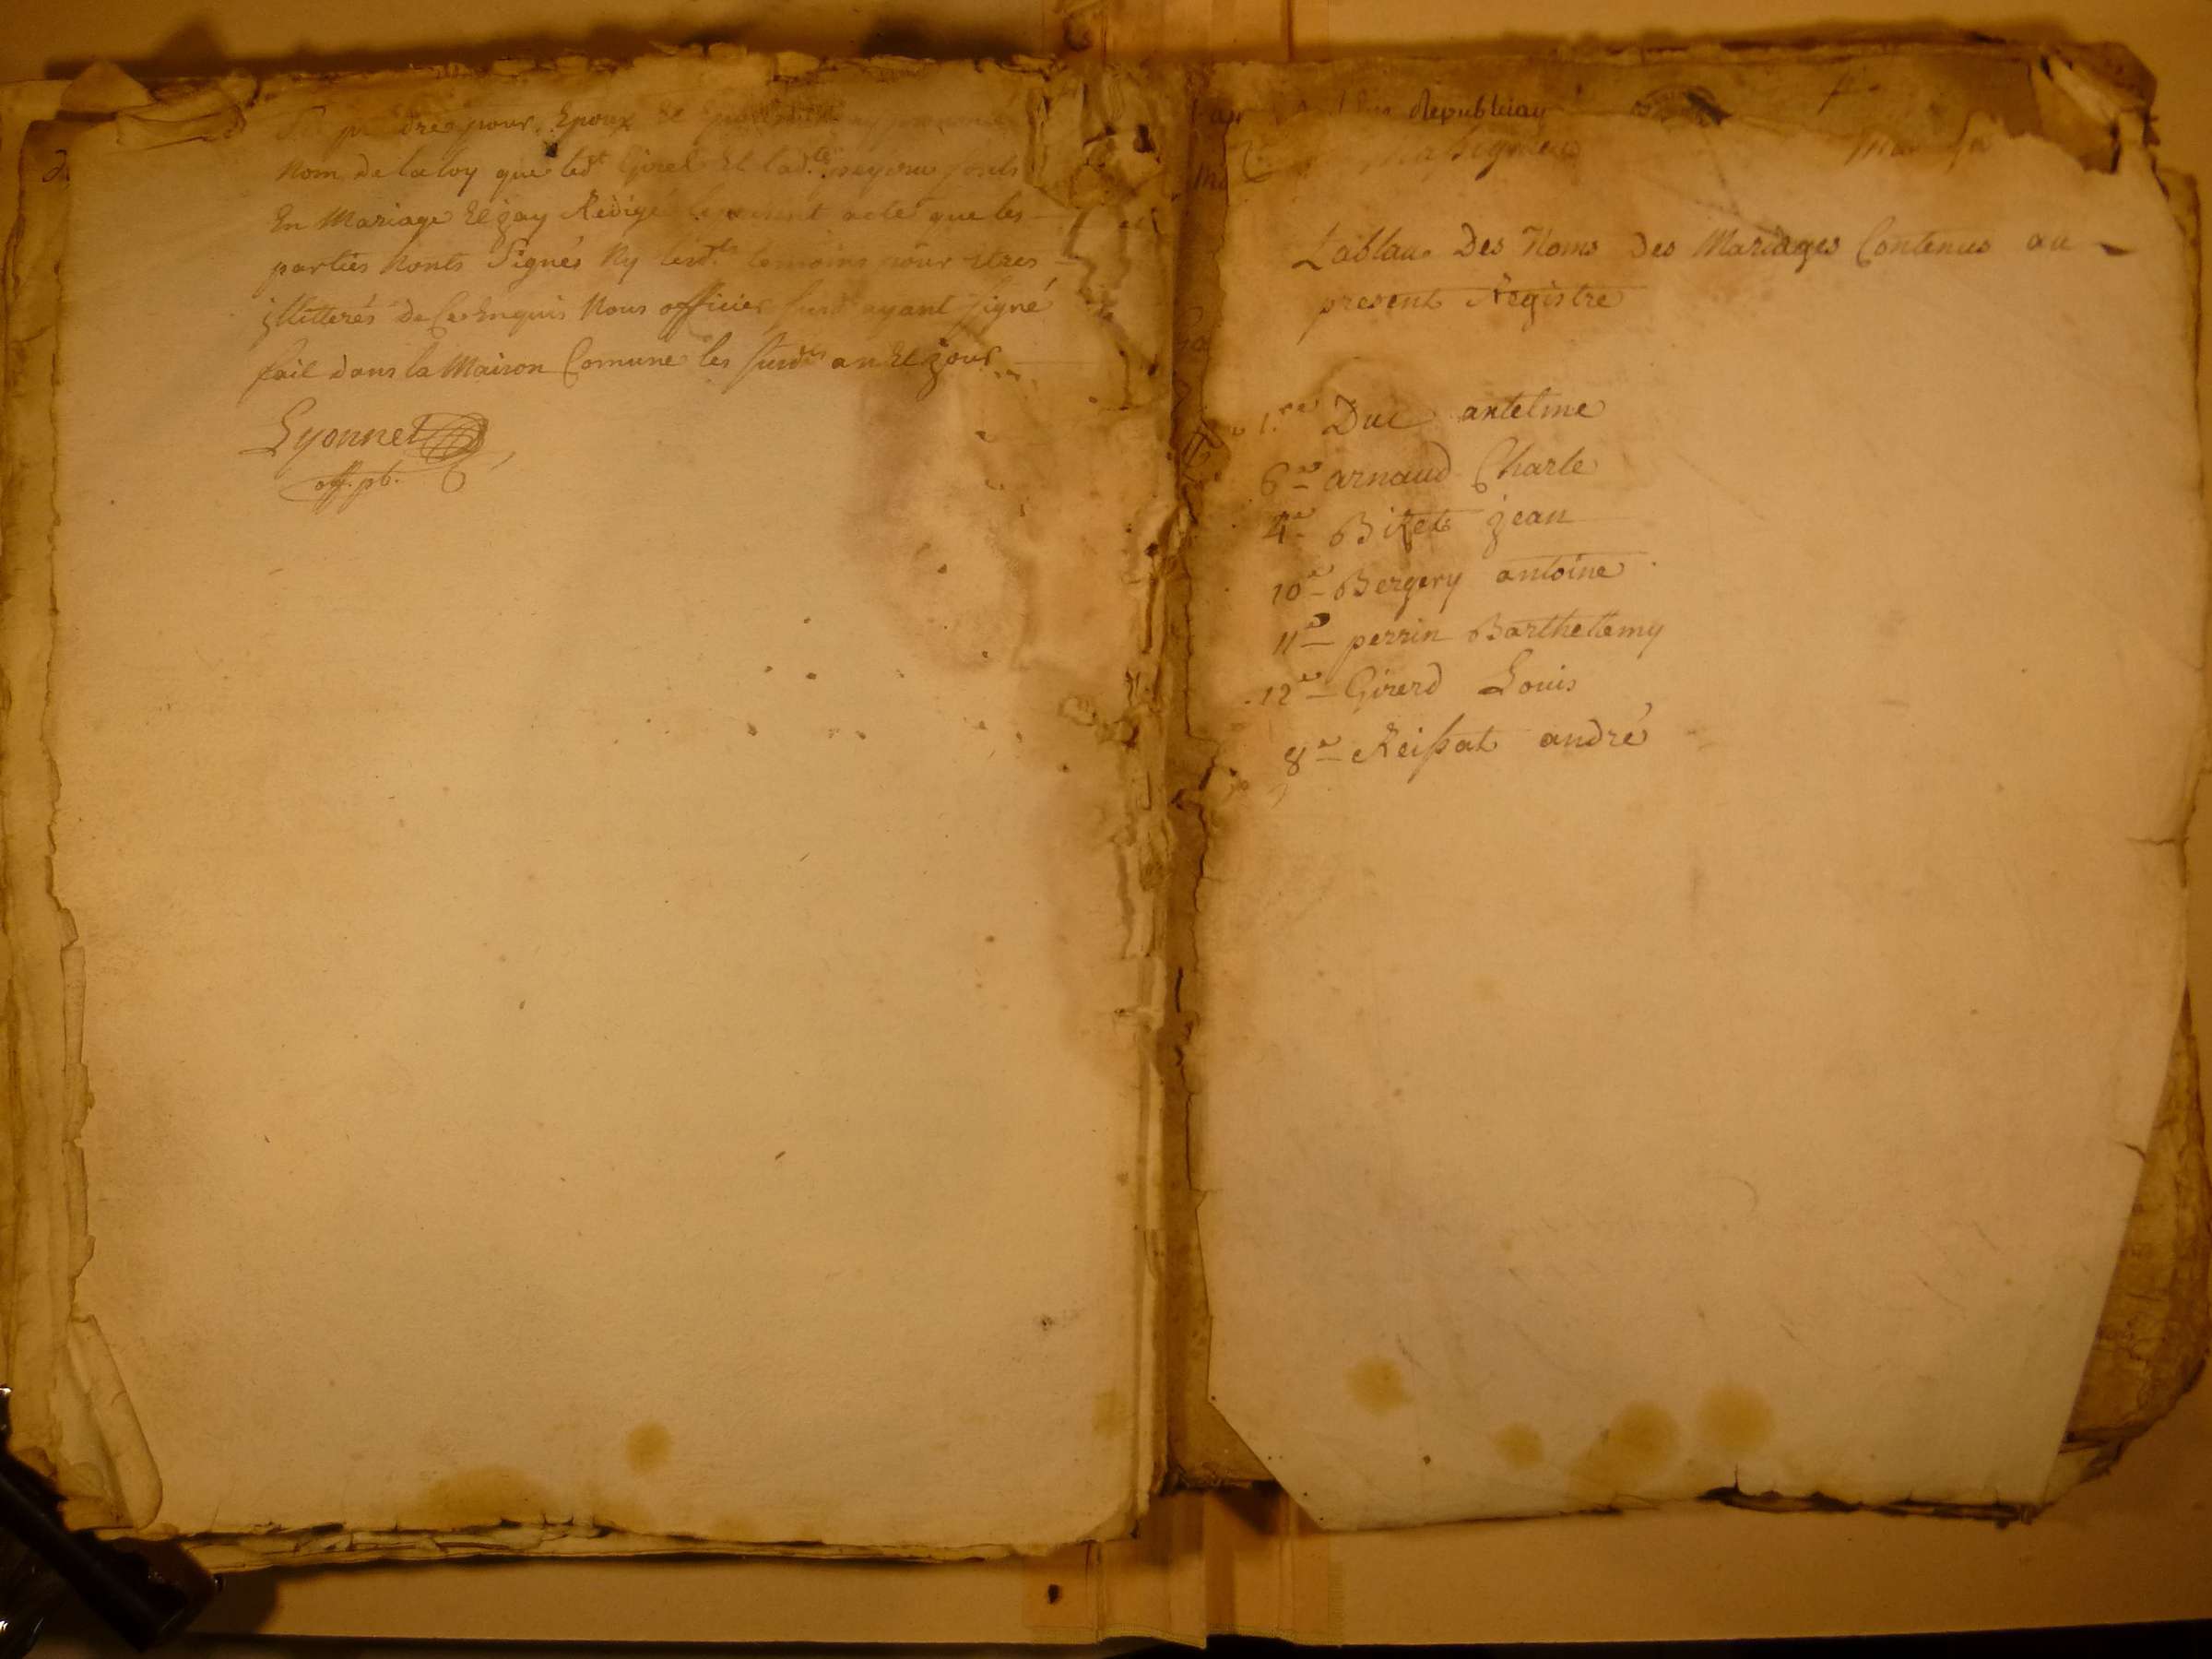 pour Epoux Et
Nom de la loy que led.t Girel Et lad.te fonts
En Mariage Et jay Redigé le present acte que les
parties Nonts Signés Ny lesd.ts temoins pour Etres
illitterés de Ce Enquis Nous officier susd ayant signé
fait dans la Maison Comune les susd.ts an Et jour
Lyonnet
off. pb.
Republicain
Tablau Des Noms Des Mariages Contenus au
present Registre
1.re Duc antelme
6e arnaud Charle
4e Bizet jean
10e Bergery antoine
11e perrin Barthellemy
12e Girerd Louis
8e Reissat andré